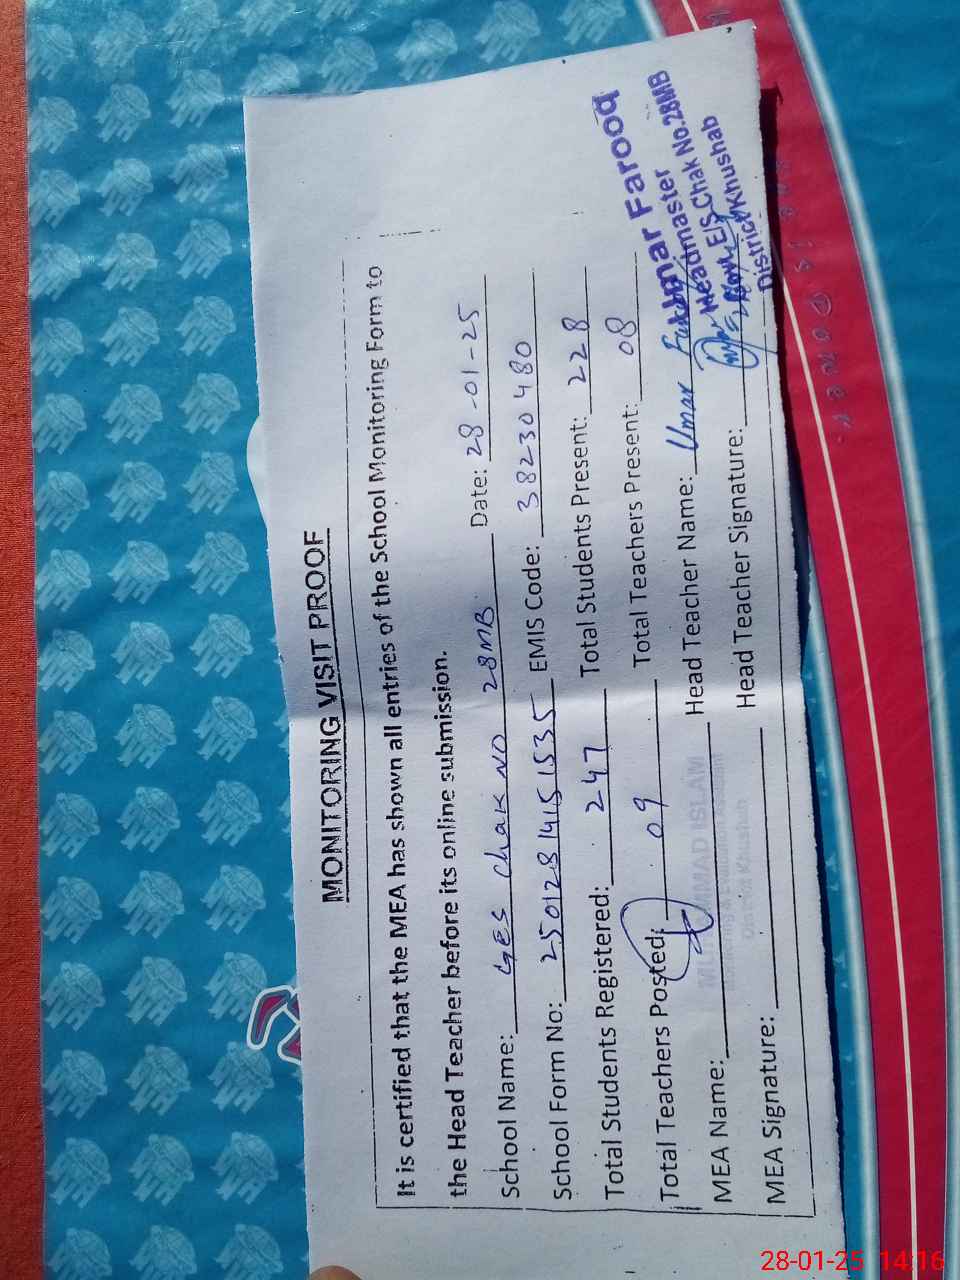 MONITORING VISIT PROOF
It is certified that the MEA has shown all entries of the School Monitoring Form to
the Head Teacher before its online submission.
School Name: GES Chak NO 28MB Date: 28-01-25
School Form No: 25012814151535 EMIS Code: 38230480
Total Students Registered: 247 Total Students Present: 228
Total Teachers Posted: 09 Total Teachers Present: 08
MEA Name: Head Teacher Name: Umar
MEA Signature: Head Teacher Signature:
MUHAMMAD ISLAM
Monitoring & Evaluation Assistant
District Khushab
Umar Farooq
Headmaster
E/S Chak No.28MB
District Khushab
28-01-25 14:16